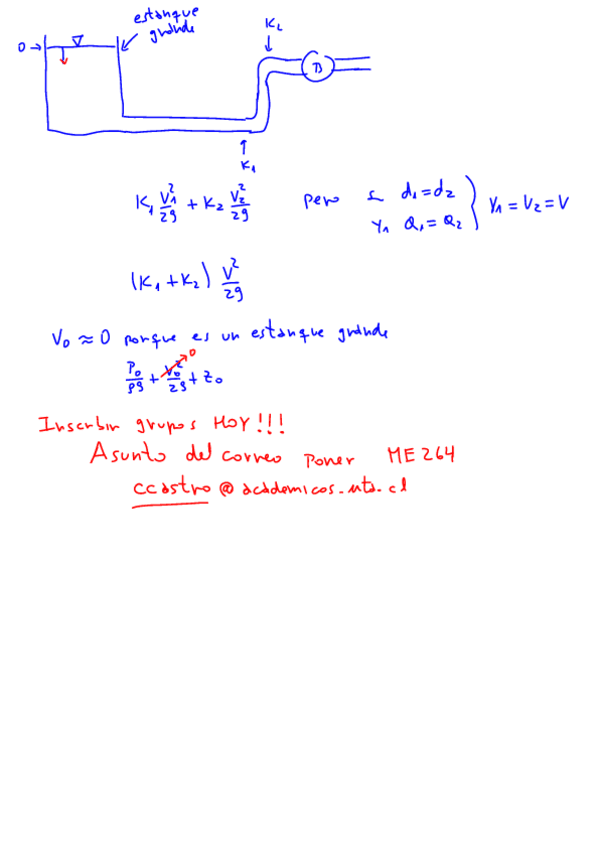 estanque
grande
0 → ∇
K₂
B
K₁
K₁ V₁²/2g + K₂ V₂²/2g pero si d₁ = d₂ } V₁ = V₂ = V
y₁ Q₁ = Q₂
(K₁ + K₂) V²/2g
V₀ ≈ 0 porque es un estanque grande
P₀/ρg + V₀²/2g + z₀
0
Inscribir grupos HOY!!!
Asunto del correo poner ME264
ccastro@academicos.uta.cl